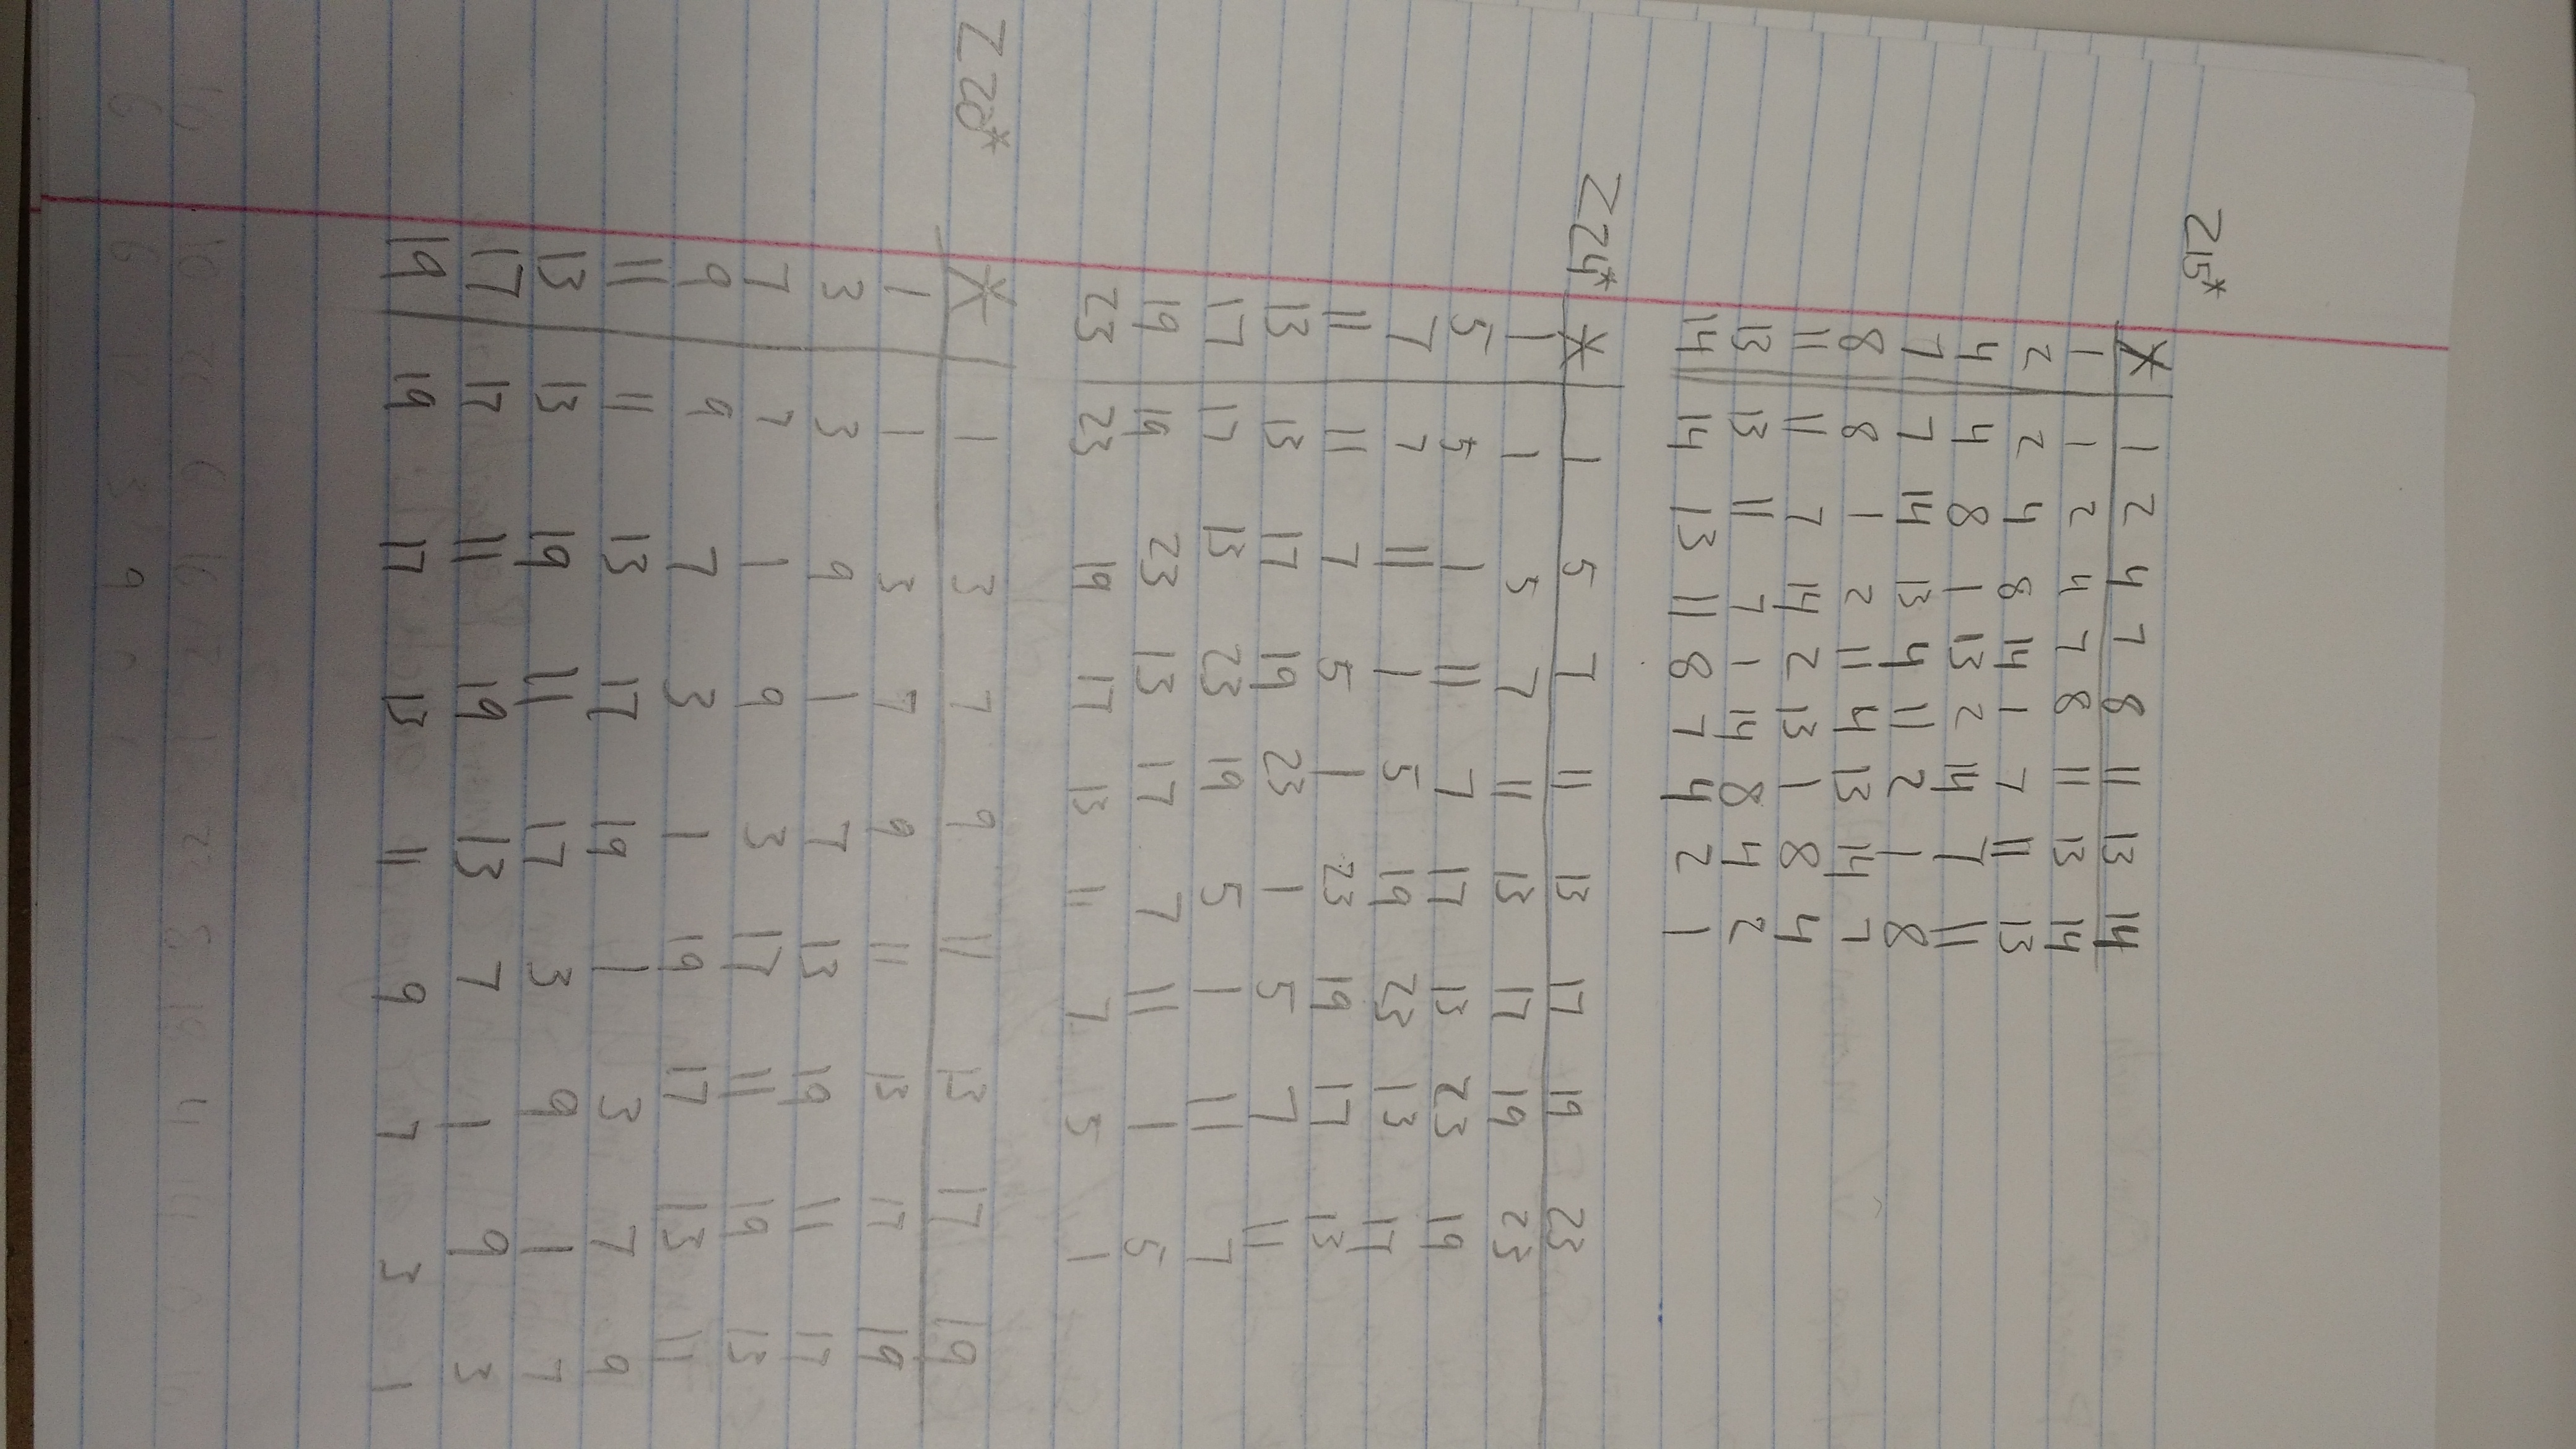 Z15*
* 1 2 4 7 8 11 13 14
1 1 2 4 7 8 11 13 14
2 2 4 8 14 1 7 11 13
4 4 8 1 13 2 14 7 11
7 7 14 13 4 11 2 1 8
8 8 1 2 11 4 13 14 7
11 11 7 14 2 13 1 8 4
13 13 11 7 1 14 8 4 2
14 14 13 11 8 7 4 2 1
Z24*
* 1 5 7 11 13 17 19 23
1 1 5 7 11 13 17 19 23
5 5 1 11 7 17 13 23 19
7 7 11 1 5 19 23 13 17
11 11 7 5 1 23 19 17 13
13 13 17 19 23 1 5 7 11
17 17 13 23 19 5 1 11 7
19 19 23 13 17 7 11 1 5
23 23 19 17 13 11 7 5 1
Z20*
* 1 3 7 9 11 13 17 19
1 1 3 7 9 11 13 17 19
3 3 9 1 7 13 19 11 17
7 7 1 9 3 17 11 19 13
9 9 7 3 1 19 17 13 11
11 11 13 17 19 1 3 7 9
13 13 19 11 17 3 9 1 7
17 17 11 19 13 7 1 9 3
19 19 17 13 11 9 7 3 1